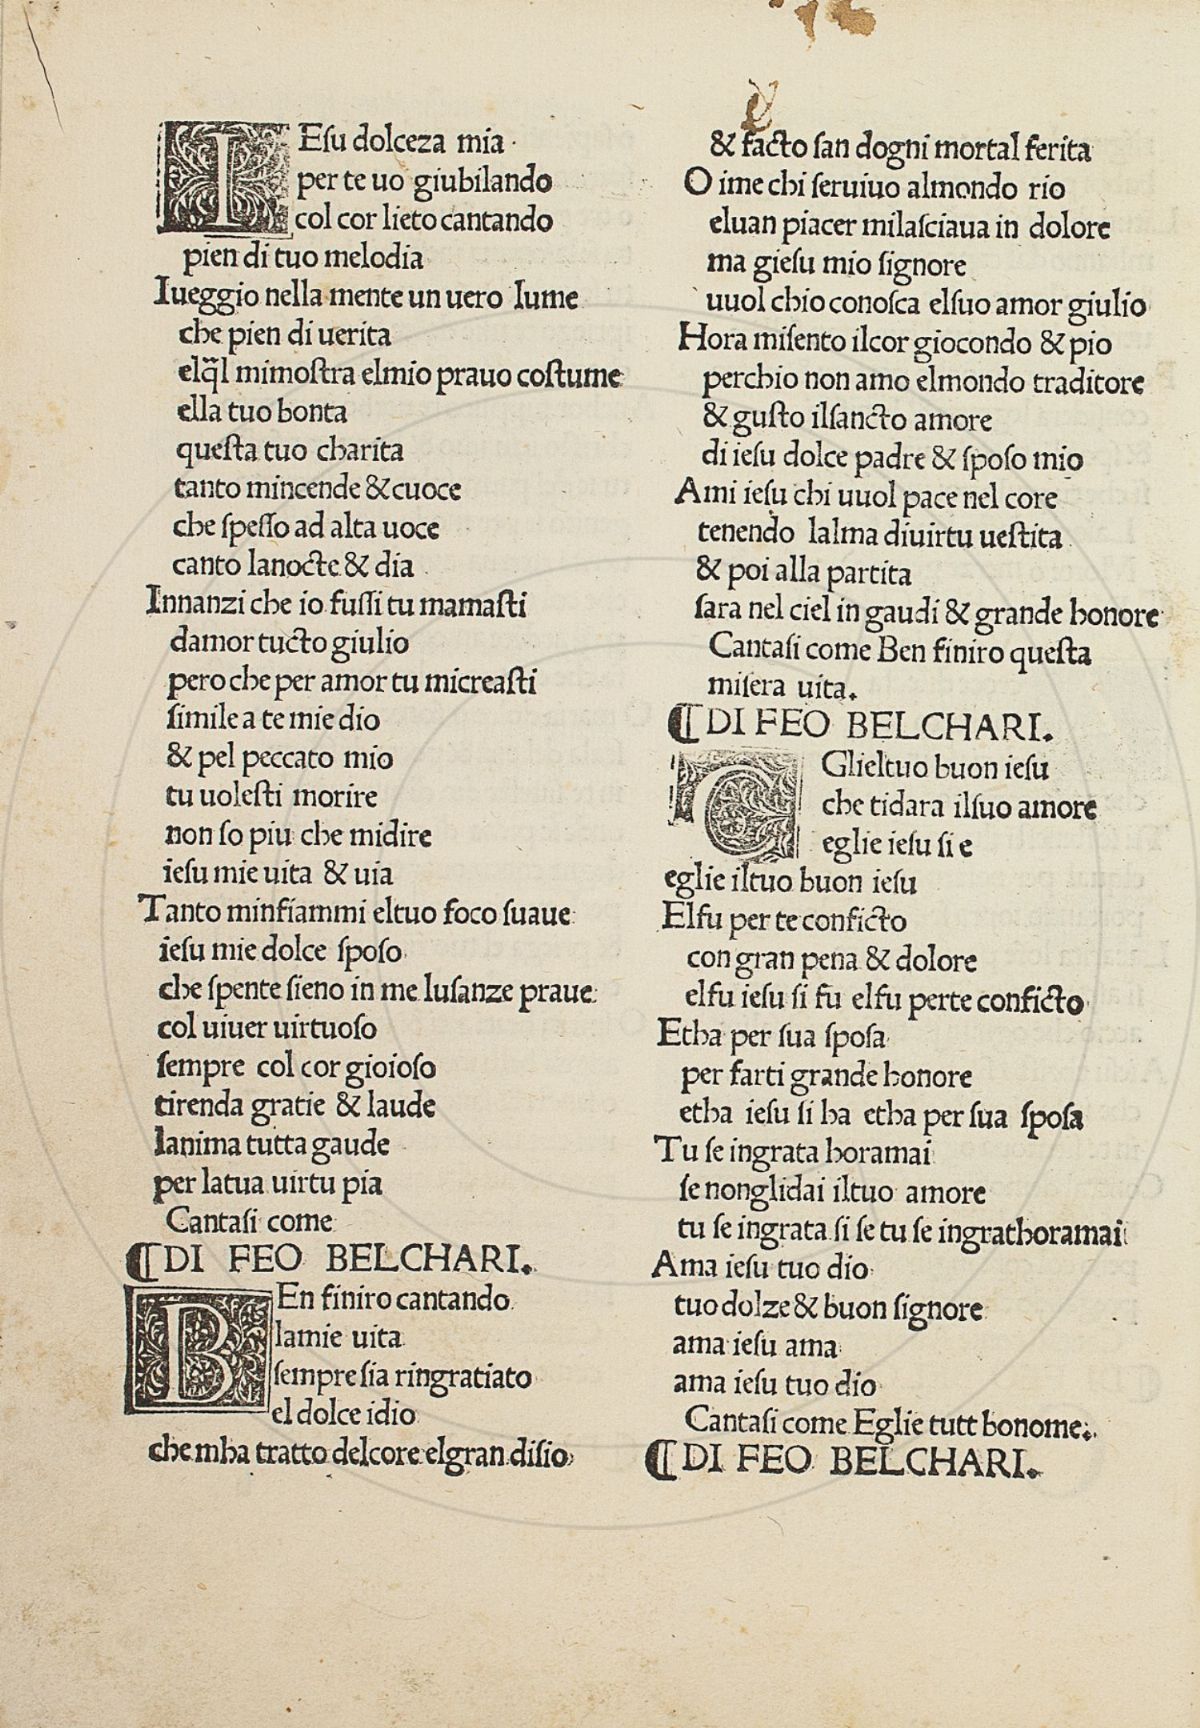 IEſu dolceza mia ·
per te uo giubilando
col cor lieto cantando
pien di tuo melodia
Iueggio nella mente un uero lume
che pien di uerita
elq̄l mimoſtra elmio prauo coſtume
ella tuo bonta
queſta tuo charita
tanto mincende & cuoce
che ſpeſſo ad alta uoce
canto lanocte & dia
Innanzi che io fuſſi tu mamaſti
damor tucto giulio
pero che per amor tu micreaſti
ſimile a te mie dio
& pel peccato mio
tu uoleſti morire
non ſo piu che midire
ieſu mie uita & uia
Tanto minfiammi eltuo foco ſuaue
ieſu mie dolce ſpoſo
che ſpente ſieno in me luſanze praue
col uiuer uirtuoſo
ſempre col cor gioioſo
tirenda gratie & laude
lanima tutta gaude
per latua uirtu pia
Cantaſi come
¶DI FEO BELCHARI.
BEn finiro cantando
lamie uita
ſempre ſia ringratiato
el dolce idio
che mha tratto delcore elgran diſio
& facto ſan dogni mortal ferita
O ime chi ſeruiuo almondo rio
eluan piacer milaſciaua in dolore
ma gieſu mio ſignore
uuol chio conoſca elſuo amor giulio
Hora miſento ilcor giocondo & pio
perchio non amo elmondo traditore
& guſto ilſancto amore
di ieſu dolce padre & ſpoſo mio
Ami ieſu chi uuol pace nel core
tenendo lalma diuirtu ueſtita
& poi alla partita
ſara nel ciel in gaudi & grande honore
Cantaſi come Ben finiro queſta
miſera uita.
¶DI FEO BELCHARI.
EGlieltuo buon ieſu
che tidara ilſuo amore
eglie ieſu ſi e
eglie iltuo buon ieſu
Elfu per te conficto
con gran pena & dolore
elfu ieſu ſi fu elfu perte conficto
Etha per ſua ſpoſa
per farti grande honore
etha ieſu ſi ha etha per ſua ſpoſa
Tu ſe ingrata horamai
ſe nonglidai iltuo amore
tu ſe ingrata ſi ſe tu ſe ingrathoramai
Ama ieſu tuo dio
tuo dolze & buon ſignore
ama ieſu ama
ama ieſu tuo dio
Cantaſi come Eglie tutt bonome.
¶DI FEO BELCHARI.